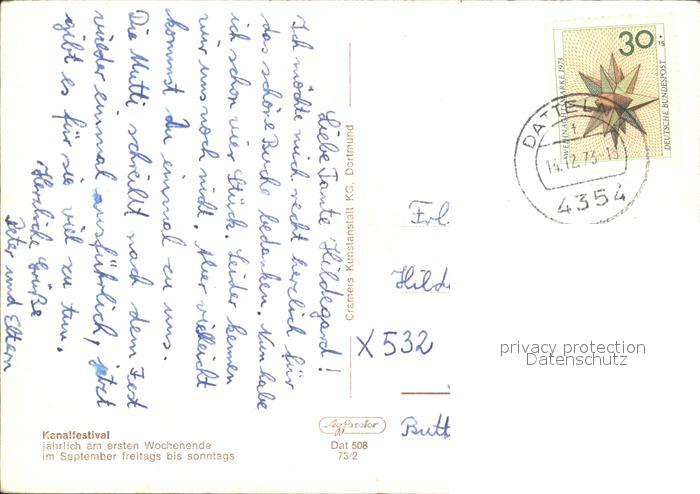 Liebe Tante Hildegard!
Ich möchte mich recht herzlich für
das schöne Buch bedanken. Nun habe
ich schon vier Stück. Leider kennen
wir uns noch nicht. Aber vielleicht
kommst Du einmal zu uns.
Die Mutti schreibt nach dem Fest
wieder einmal ausführlich, jetzt
gibt es für sie viel zu tun.
Herzliche Grüße
Peter und Eltern
Kanalfestival
jährlich am ersten Wochenende
im September freitags bis sonntags
Cramers Kunstanstalt KG, Dortmund
Agfacolor
Dat 508
73/2
30
+15
WEIHNACHTSMARKE 1973
DEUTSCHE BUNDESPOST
DATTELN
14.12.73-19
4354
Frl
Hild
X 532
Butt
privacy protection
Datenschutz